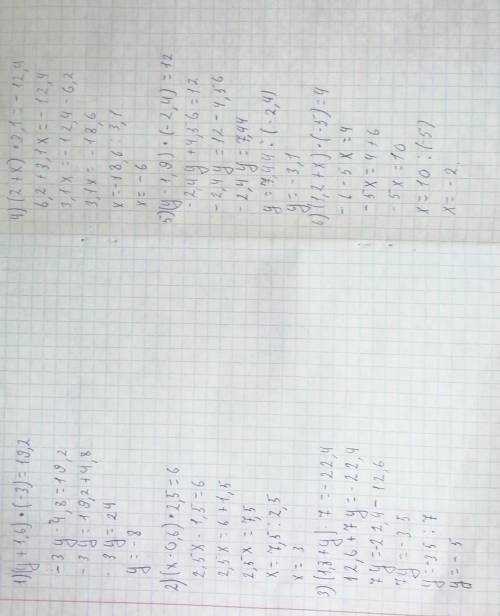 1)(y + 1,6) · (-3) = 19,2
- 3 y - 4,8 = 19,2
- 3 y = 19,2 + 4,8
- 3 y = 24
y = -8
2)(x - 0,6) · 2,5 = 6
2,5x - 1,5 = 6
2,5x = 6 + 1,5
2,5x = 7,5
x = 7,5 : 2,5
x = 3
3)(1,8 + y) · 7 = -22,4
12,6 + 7y = -22,4
7y = -22,4 - 12,6
7y = -35
y = -35 : 7
y = -5
4)(2 + x) · 3,1 = -12,4
6,2 + 3,1x = -12,4
3,1x = -12,4 - 6,2
3,1x = -18,6
x = -18,6 : 3,1
x = -6
5)(y - 1,9) · (-2,4) = 12
-2,4y + 4,56 = 12
-2,4y = 12 - 4,56
-2,4y = 7,44
y = 7,44 : (-2,4)
y = -3,1
6)(1,2 + x) · (-5) = 4
- 6 - 5x = 4
- 5x = 4 + 6
- 5x = 10
x = 10 : (-5)
x = -2.